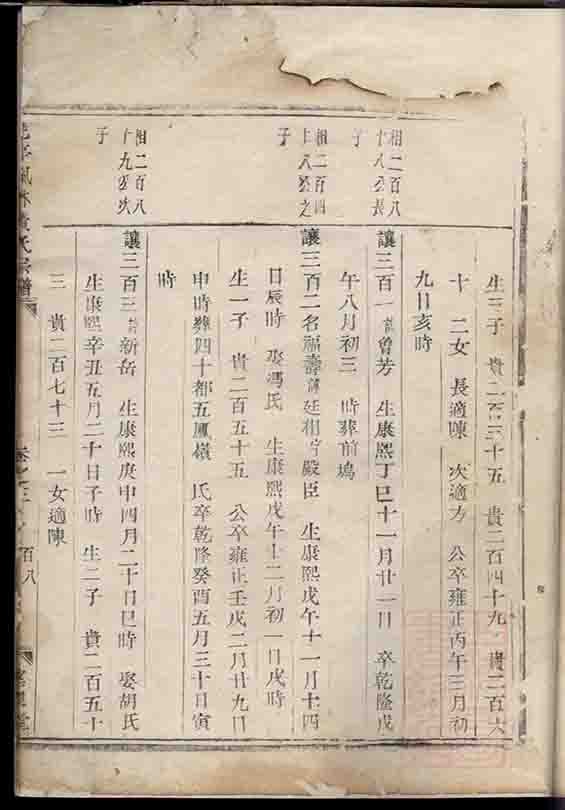 生三子 貴二百三十五 貴二百四十九 貴二百六
十 二女 長適陳 次適方 公卒雍正丙午三月初
九日亥時
相二百八
十八公長
子
讓三百一諱曾芳 生康熙丁巳十一月廿一日 卒乾隆戊
午八月初三 時葬前塢
相二百四
十八公之
子
讓三百二名福壽諱廷相字殿臣 生康熙戊午十一月十四
日辰時 娶馮氏 生康熙戊午十二月初一日戌時
生一子 貴二百五十五 公卒雍正壬戌二月廿九日
申時葬四十都五鳳嶺 氏卒乾隆癸酉五月三十日寅
時
相二百八
十九公次
子
讓三百三諱新岳 生康熙庚申四月二十日巳時 娶胡氏
生康熙辛丑五月二十日子時 生二子 貴二百五十
三 貴二百七十三 一女適陳
黃氏宗譜
百八
堂